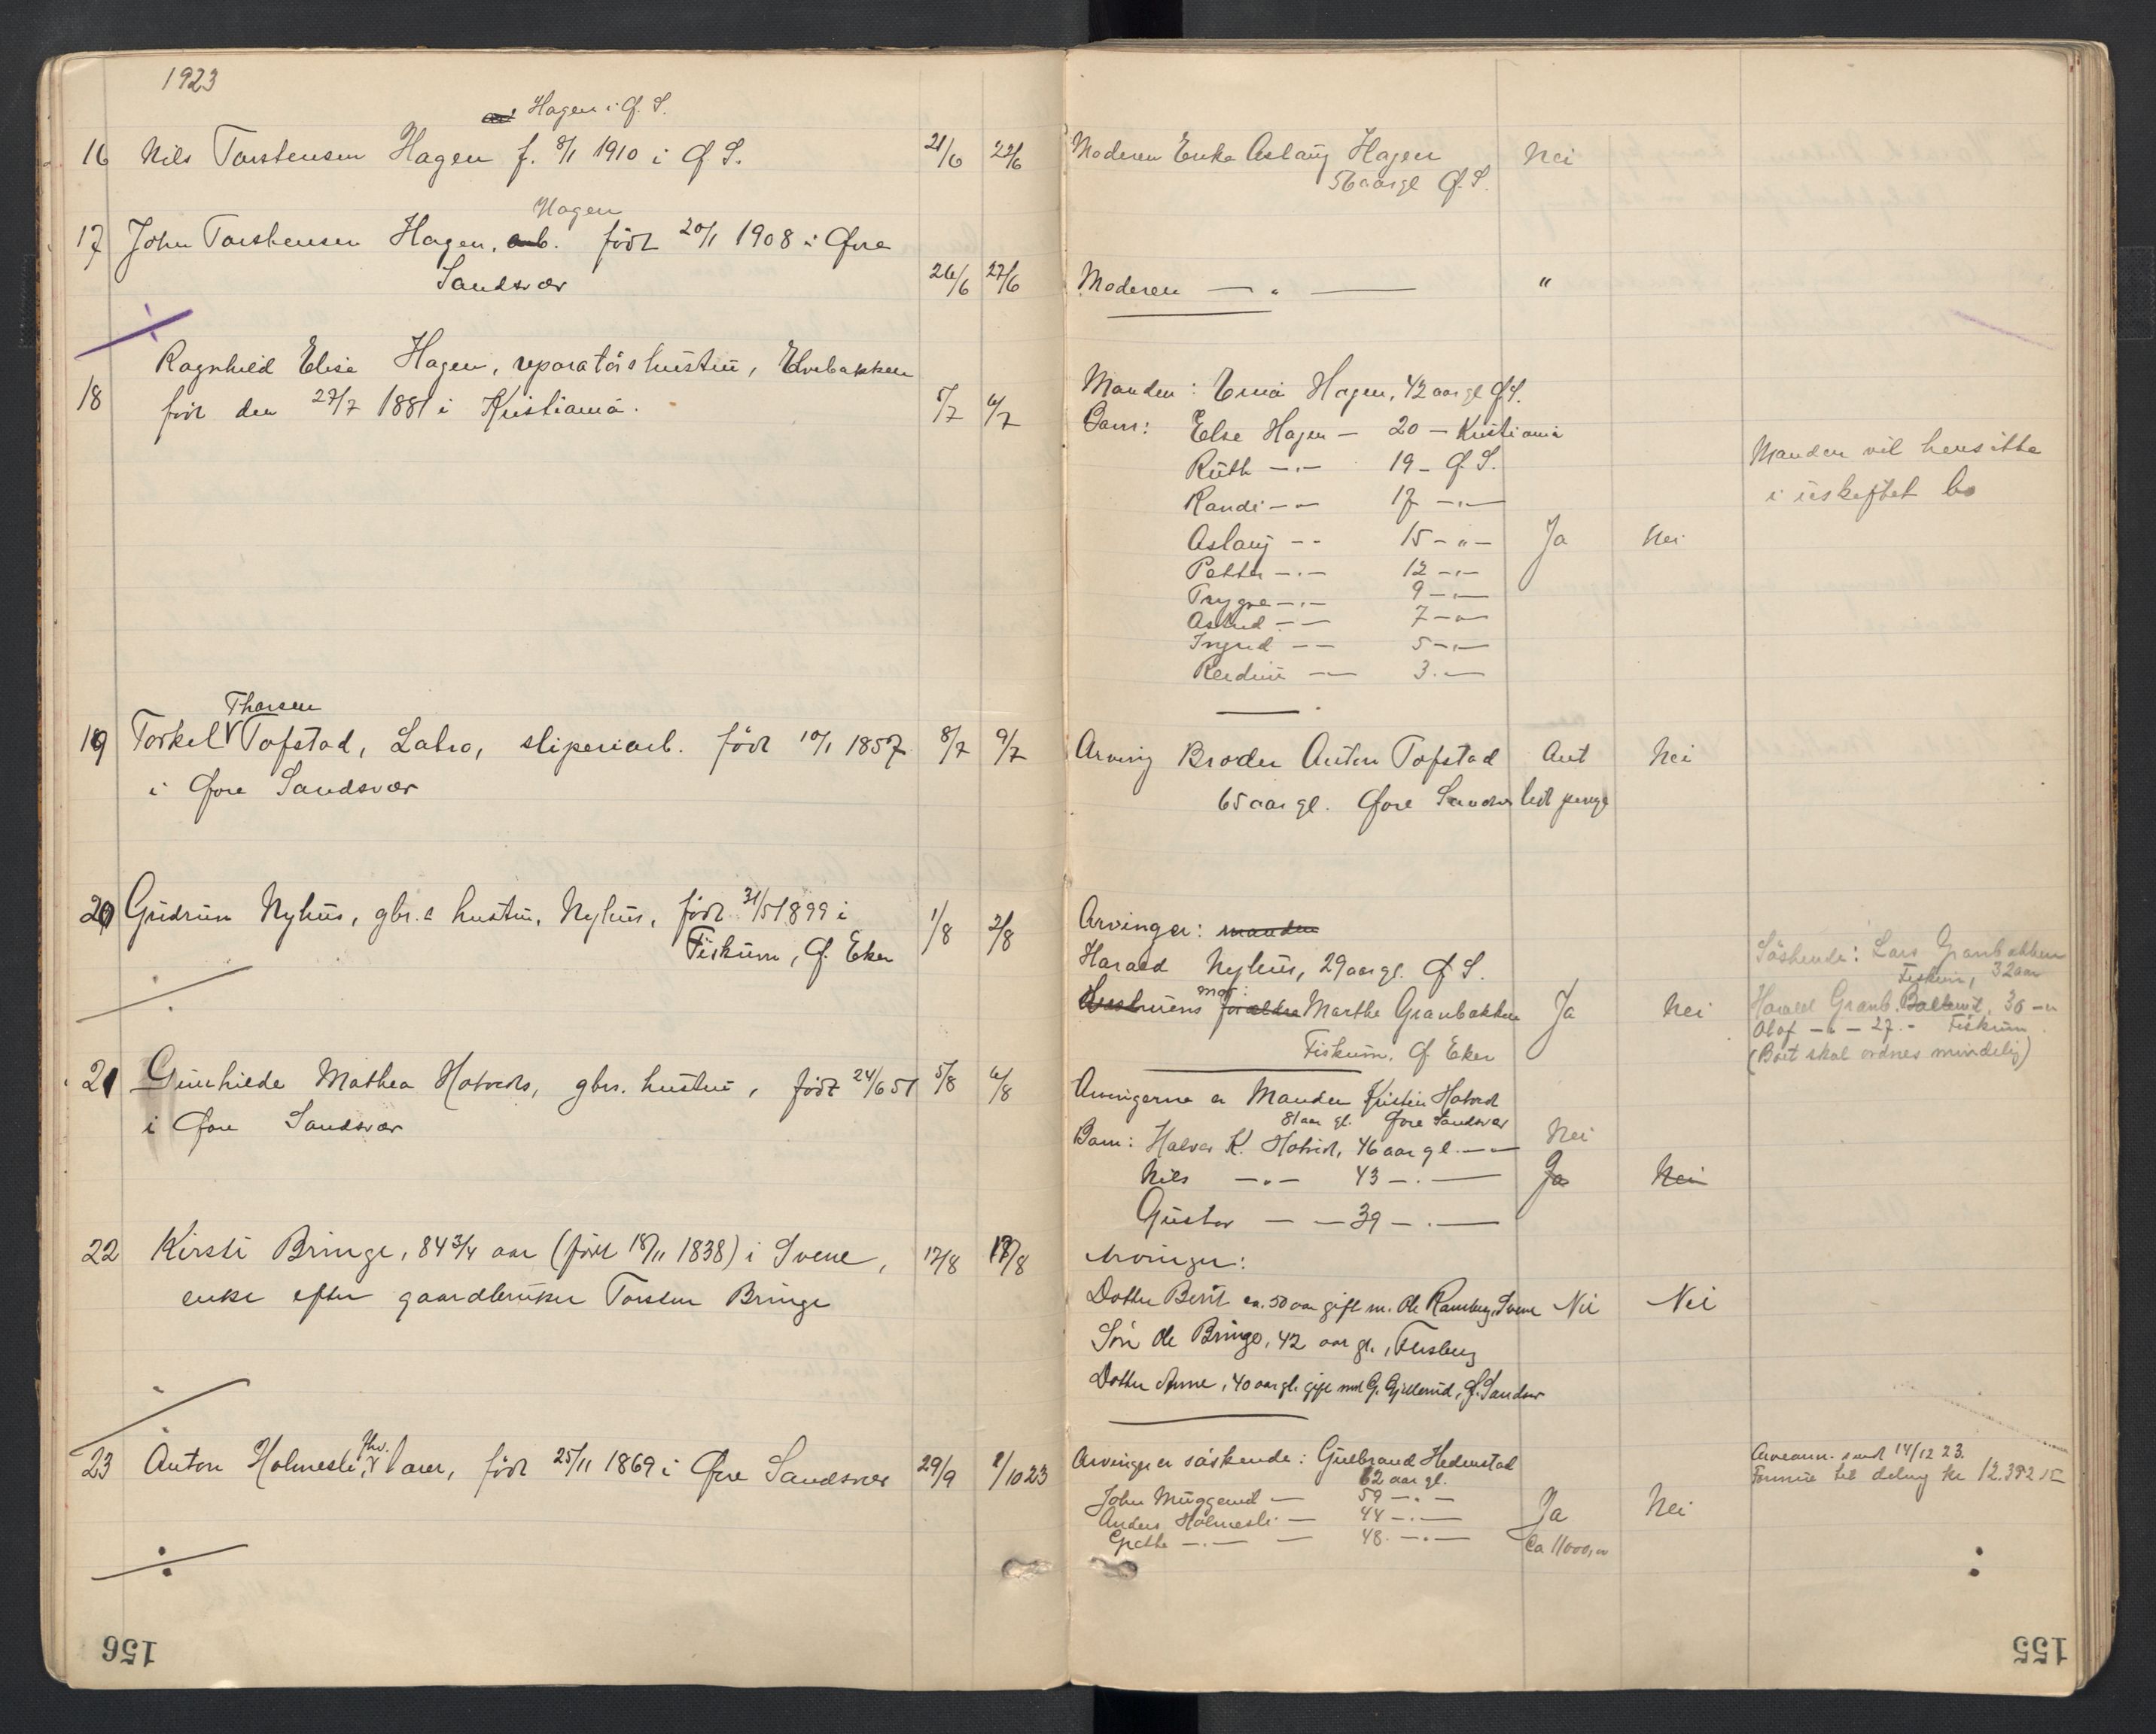 1923
Hagen i Ø. S.
16 Nils Torstensen Hagen f. 8/1 1910 i Ø S. 21/6 22/6 Moderen Enke Aslaug Hagen Nei
56 aar gl Ø. S.
Hagen
17 John Torstensen Hagen, arb. født 20/1 1908 i Øvre
Sandsvær 26/6 27/6 Moderen — " — "
Ragnhild Elise Hagen, reparatørs hustru, Elvebakken
18 født den 27/7 1881 i Kristiania. 5/7 6/7
Manden: Hagen, 42 aar gl Ø S.
Barn: Else Hagen — 20 — Kristiania
Ruth — " — 19 — Ø. S.
Randi — " — 17 — " —
Aslaug — " — 15 — " — Ja Nei
Petter — " — 12 — " —
Trygve — " — 9 — " —
Astrid — " — 7 — " —
Ingrid — " — 5 — " —
Reidun — " — 3 — " —
Manden vil hensitte
i uskiftet bo
Thorsen
19 Torkel Tofstad, Labro, sliperiarb. født 10/1 1857 8/7 9/7 Arving Broder Anton Tofstad Ant Nei
i Øvre Sandsvær 65 aar gl. Øvre Sandsv litt penge
20 Gudrun Nyhus, gbr.s hustru, Nyhus, født 31/5 1899 i
Fiskum, Ø. Eker 1/8 2/8
Arvinger: manden
Harald Nyhus, 29 aar gl. Ø S.
mor:
Hustruens forældre Marthe Granbakken Ja Nei
Fiskum, Ø Eker
Søskende: Lars Granbakken
Fiskum, 32 aar
Harald Granb. 30 — "
Olaf — " — 27 — " Fiskum
(Boet skal ordnes mindelig)
21 Gunhilde Mathea Hotvedt, gbrs. hustru, født 24/6 51 5/8 6/8
i Øvre Sandsvær
Arvingerne er Manden Kristen Hotvedt
81 aar gl. Øvre Sandsvær
Barn: Halvor K. Hotvedt, 46 aar gl. — " — Nei
Nils — " — 43 — " — Ja Nei
Gustav — " — 39 — " —
22 Kirsti Bringe, 84 3/4 aar (født 18/11 1838) i Svene, 17/8 18/8
enke efter gaardbruker Torsten Bringe
Arvinger:
Datter Berit ca. 50 aar gift m. Ole Ramberg, Svene Nei Nei
Søn Ole Bringe, 42 aar gl.,
Datter Anne, 40 aar gl. gift med G. Gjellerud, Ø. Sandsv
23 Anton Holmesli, født 25/11 1869 i Øvre Sandsvær 29/9 2/10 23
Arvinger er søskende: Gulbrand Hedenstad
62 aar gl.
John Muggerud — 59 — " —
Anders Holmesli — 44 — " — Ja Nei
Grethe — " — 48 — " — Ca 11000,00
Arveanm. sendt 14/12 23.
Formue til deling kr 12.392 15
156
155